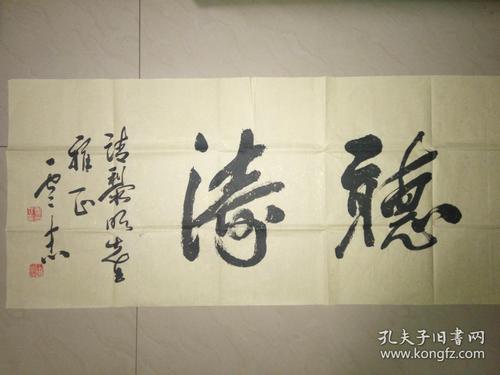 聽濤
請黎明先生
雅正
孔夫子旧书网
www.kongfz.com